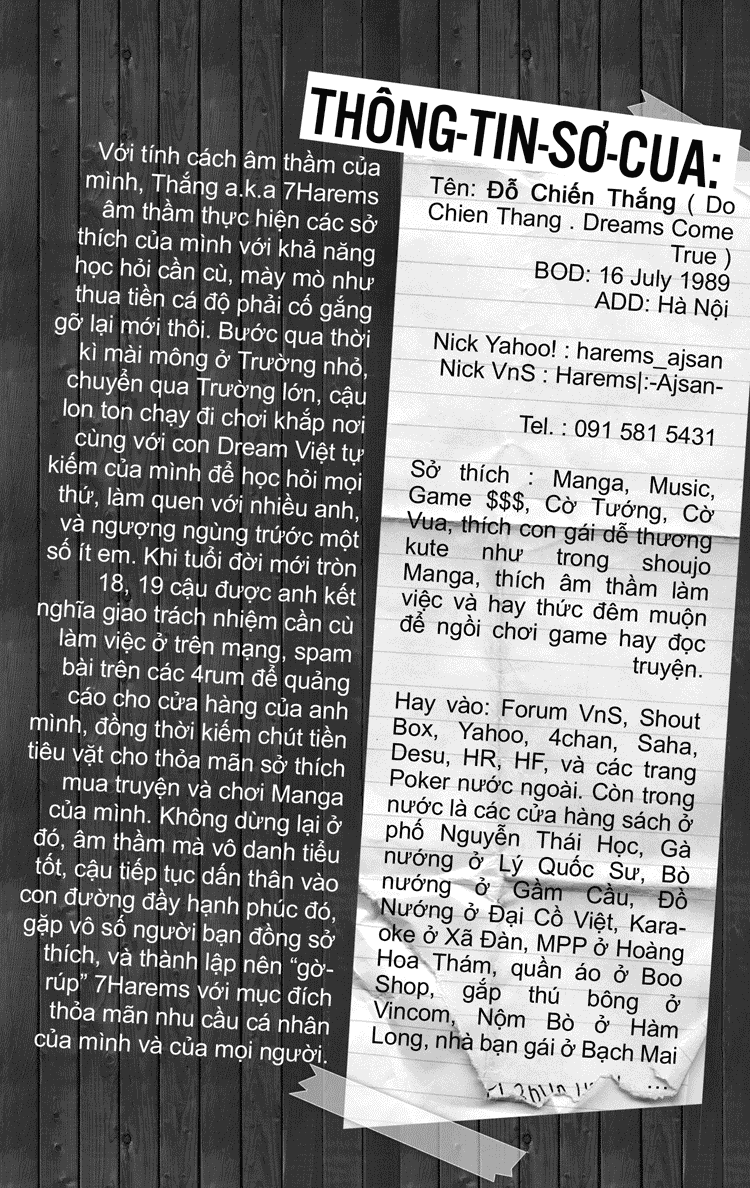 THÔNG-TIN-SƠ-CUA:
Với tính cách âm thầm của
mình, Thắng a.k.a 7Harems
âm thầm thực hiện các sở
thích của mình với khả năng
học hỏi cần cù, mày mò như
thua tiền cá độ phải cố gắng
gỡ lại mới thôi. Bước qua thời
kì mài mông ở Trường nhỏ,
chuyển qua Trường lớn, cậu
lon ton chạy đi chơi khắp nơi
cùng với con Dream Việt tự
kiếm của mình để học hỏi mọi
thứ, làm quen với nhiều anh,
và ngượng ngùng trước một
số ít em. Khi tuổi đời mới tròn
18, 19 cậu được anh kết
nghĩa giao trách nhiệm cần cù
làm việc ở trên mạng, spam
bài trên các 4rum để quảng
cáo cho cửa hàng của anh
mình, đồng thời kiếm chút tiền
tiêu vặt cho thỏa mãn sở thích
mua truyện và chơi Manga
của mình. Không dừng lại ở
đó, âm thầm mà vô danh tiểu
tốt, cậu tiếp tục dấn thân vào
con đường đầy hạnh phúc đó,
gặp vô số người bạn đồng sở
thích, và thành lập nên “gờ-
rúp” 7Harems với mục đích
thỏa mãn nhu cầu cá nhân
của mình và của mọi người.
Tên: Đỗ Chiến Thắng ( Do
Chien Thang . Dreams Come
True )
BOD: 16 July 1989
ADD: Hà Nội
Nick Yahoo! : harems_ajsan
Nick VnS : Harems|:-Ajsan-
Tel. : 091 581 5431
Sở thích : Manga, Music,
Game $$$, Cờ Tướng, Cờ
Vua, thích con gái dễ thương
kute như trong shoujo
Manga, thích âm thầm làm
việc và hay thức đêm muộn
để ngồi chơi game hay đọc
truyện.
Hay vào: Forum VnS, Shout
Box, Yahoo, 4chan, Saha,
Desu, HR, HF, và các trang
Poker nước ngoài. Còn trong
nước là các cửa hàng sách ở
phố Nguyễn Thái Học, Gà
nướng ở Lý Quốc Sư, Bò
nướng ở Gầm Cầu, Đồ
Nướng ở Đại Cồ Việt, Kara-
oke ở Xã Đàn, MPP ở Hoàng
Hoa Thám, quần áo ở Boo
Shop, gắp thú bông ở
Vincom, Nộm Bò ở Hàm
Long, nhà bạn gái ở Bạch Mai
...